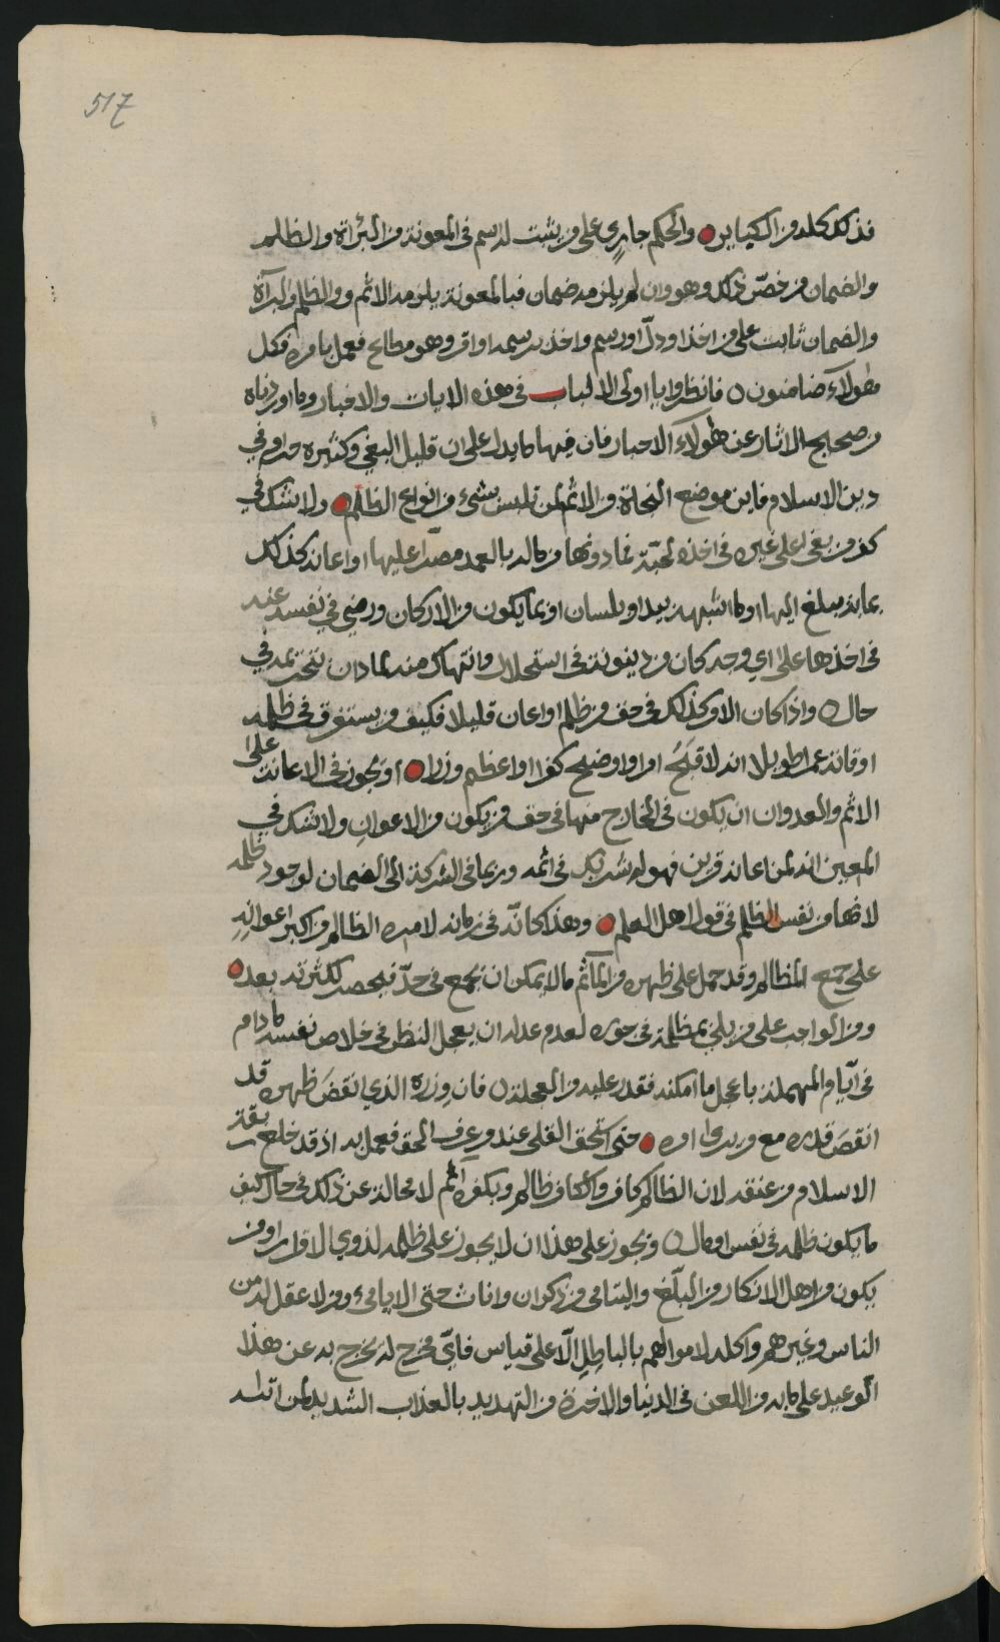 517
فذلك كله من الكباير والحكم جارٍي على من يثبت له اسم في المعونة من البرآة والظلم
والضمان من خصّ ذلك وهو وان لم يلزمه ضمان فبالمعونة يلزمه الاثم والظلم والبرآة
والضمان ثابت على من اخذ او دلّ او رسم واخذ برسمه او اقر وهو مطاع فعمل بامره فكل
هؤلآء ضامنون فانظروا يا اولى الالباب في هذه الايات والاخبار وما اوردناه
من صحيح الاثار عن هؤلآء الاحبار فان فيها ما يدل على ان قليل البغي وكثيره حرام في
دين الاسلام فاين موضع النجاة من الاثم لمن تلبس بشيء من انواع الظلم ولا نشك في
كفر من بغى على غيره في اخذه لحبّة فما دونها من ماله بالعمد مصرّا عليها او اعانه كذلك
بما به مبلغ اليها او ما اشبهه بيد او بلسان او بما يكون من الاركان ورضي في نفسه عنه
في اخذها على اي وجه كان من دينونة في استحلال وانتهاك منه لما دان بتحريمه في
حال واذا كان الامر كذلك في حق من ظلم او اعان قليلا فكيف من يستغرق في ظلمه
اوقاته عمرا طويلا انه لاقبَحُ امرا واوضح كفرا واعظم وزرا أويجوز في الاعانة على
الاثم والعدوان ان يكون في الخارج منها في حق من يكون من الاعوانِ ولا نشك في
المعين انه لمن اعانه قرين فهو له شريك في اثمه وربما في الشركة الى الضمان لوجود ظلمه
لانها من نفس الظلم في قول اهل العلم وهذا كانّه في زمانه لامره الظالم من اكبر اعوانِهِ
على جمع المظالم وقد حمل على ظهره من المآثم ما لا يمكن ان يجمع في حدّ فيحصر لكثرته بعد
ومن الواجب على من بلي بمظلمة في جوره لعدم عدله ان يعجل النظر في خلاص نفسه ما دام
في ايّام المهملة باعجل ما امكنه فقدر عليه من العجلة فان وِزره الذي انقضَ ظهره قد
انقصَ قدره مع من يدرى امره حتى استحق القلى عند من عرف الحق فعمل به اذ قد خلع ربقة
الاسلام من عنقه لان الظالم كافر والكافر ظالم وبكفره اثم لا محالة عن ذلك في حال كيف
ما يكون ظلمه في نفس او مال ويجوز على هذا ان لا يجوز على ظلمه لذوي الاقرار او من
يكون من اهل الانكار من البلّغ واليتامى من ذكران واناث حتى الايامىٰ ومن لا عقل له من
الناس وغيرهم واكله لاموالهم بالباطل الّا على قياس فايّ مخرج له يخرج به عن هذا
الوعيد على ما به من اللعن في الدنيا والاخرة من التهديد بالعذاب الشديد لمن اتاه